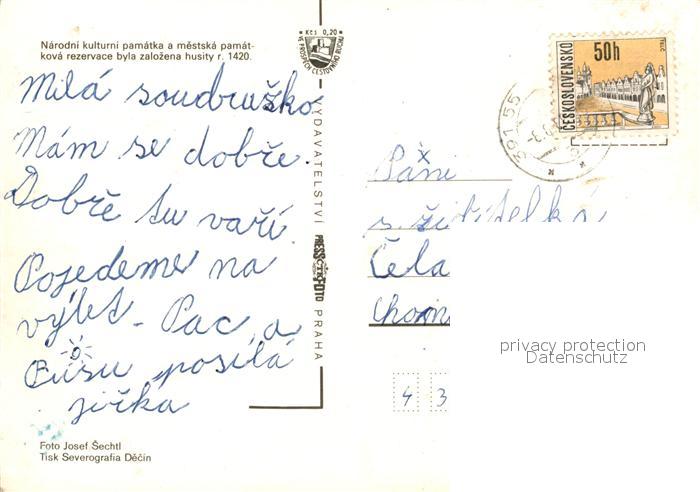 Národní kulturní památka a městská památ-
ková rezervace byla založena husity r. 1420.
Kčs 0,20
VE PROSPĚCH CESTOVNÍHO RUCHU
Milá soudružko
Mám se dobře.
Dobře tu vaří.
Pojedeme na
výlet. Pac a
Pusu posílá
jiřka
Foto Josef Šechtl
Tisk Severografia Děčín
VYDAVATELSTVÍ PRESSFOTO PRAHA
ČESKOSLOVENSKO
50h
TELČ
391 55
Páni
s. židitelka
Čela
Chom
4 3
privacy protection
Datenschutz